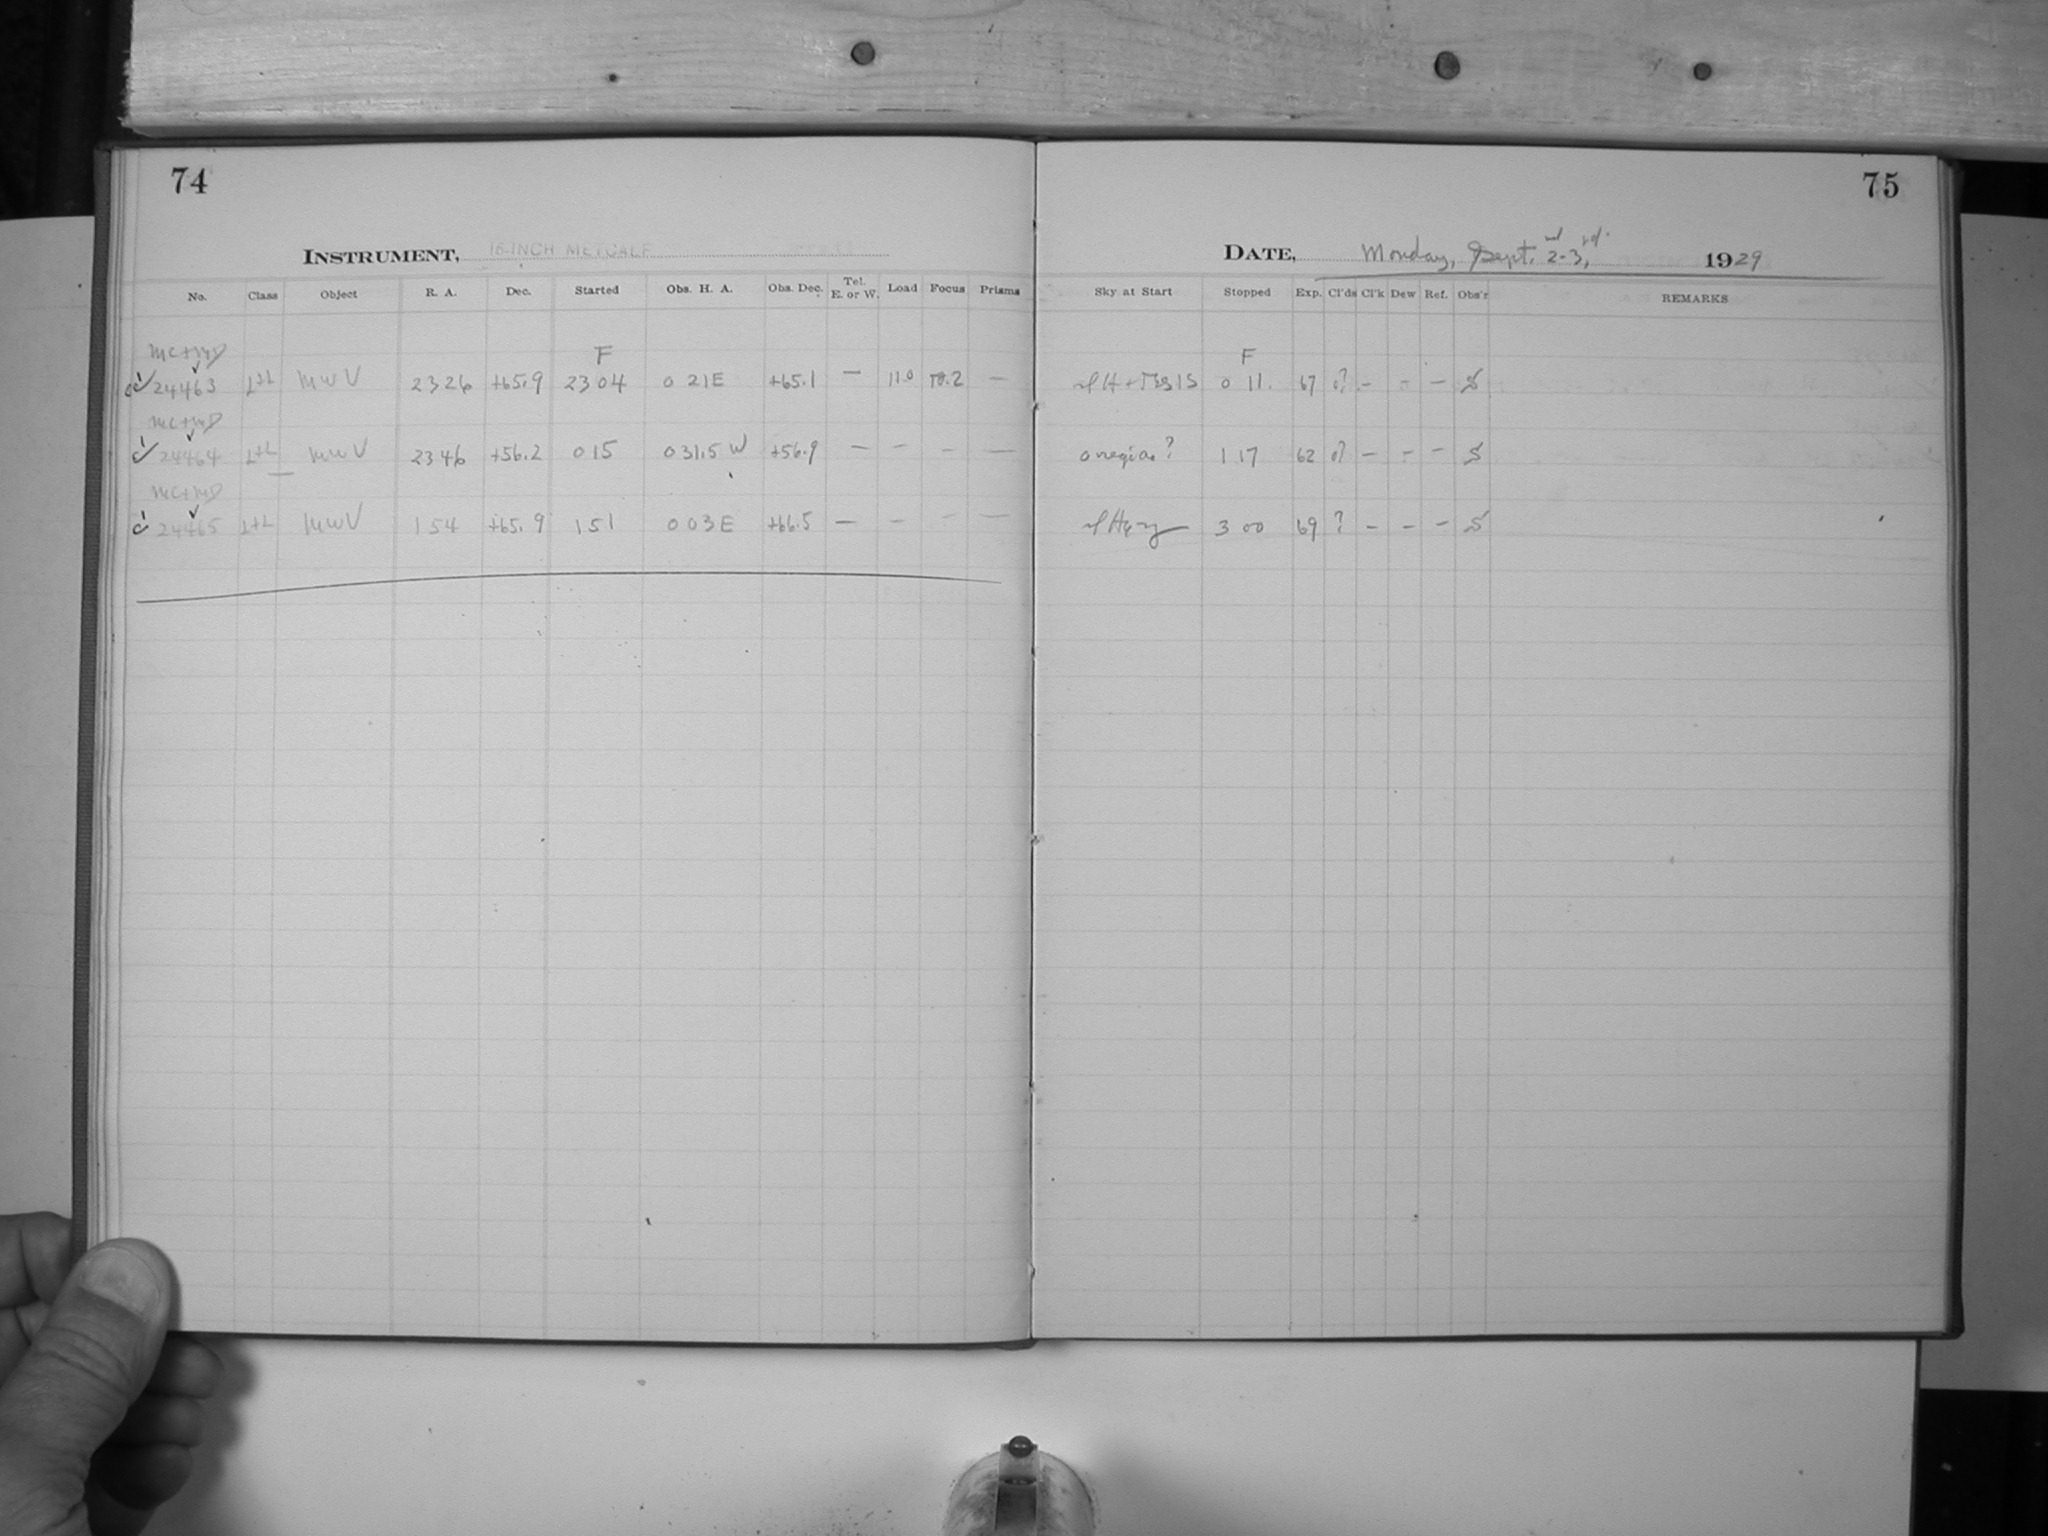 74
75
INSTRUMENT, 16-INCH METCALF
DATE, Monday, Sept. 2nd-3rd, 1929
No. Class Object R. A. Dec. Started Obs. H. A. Obs. Dec. Tel. E. or W. Load Focus Prisms Sky at Start Stopped Exp. Cl'ds Cl'k Dew Ref. Obs'r REMARKS
F F
24463 L+L MWV 23 26 +65.9 23 04 0 21E +65.1 — 11.0 — 0 11. 67 – – –
24464 L+L MWV 23 46 +56.2 0 15 0 31.5 W +56.9 — – – — 1 17 62 – – –
24465 L+L MWV 1 54 +65.9 1 51 0 03E +66.5 — – – — 3 00 69 ? – – –